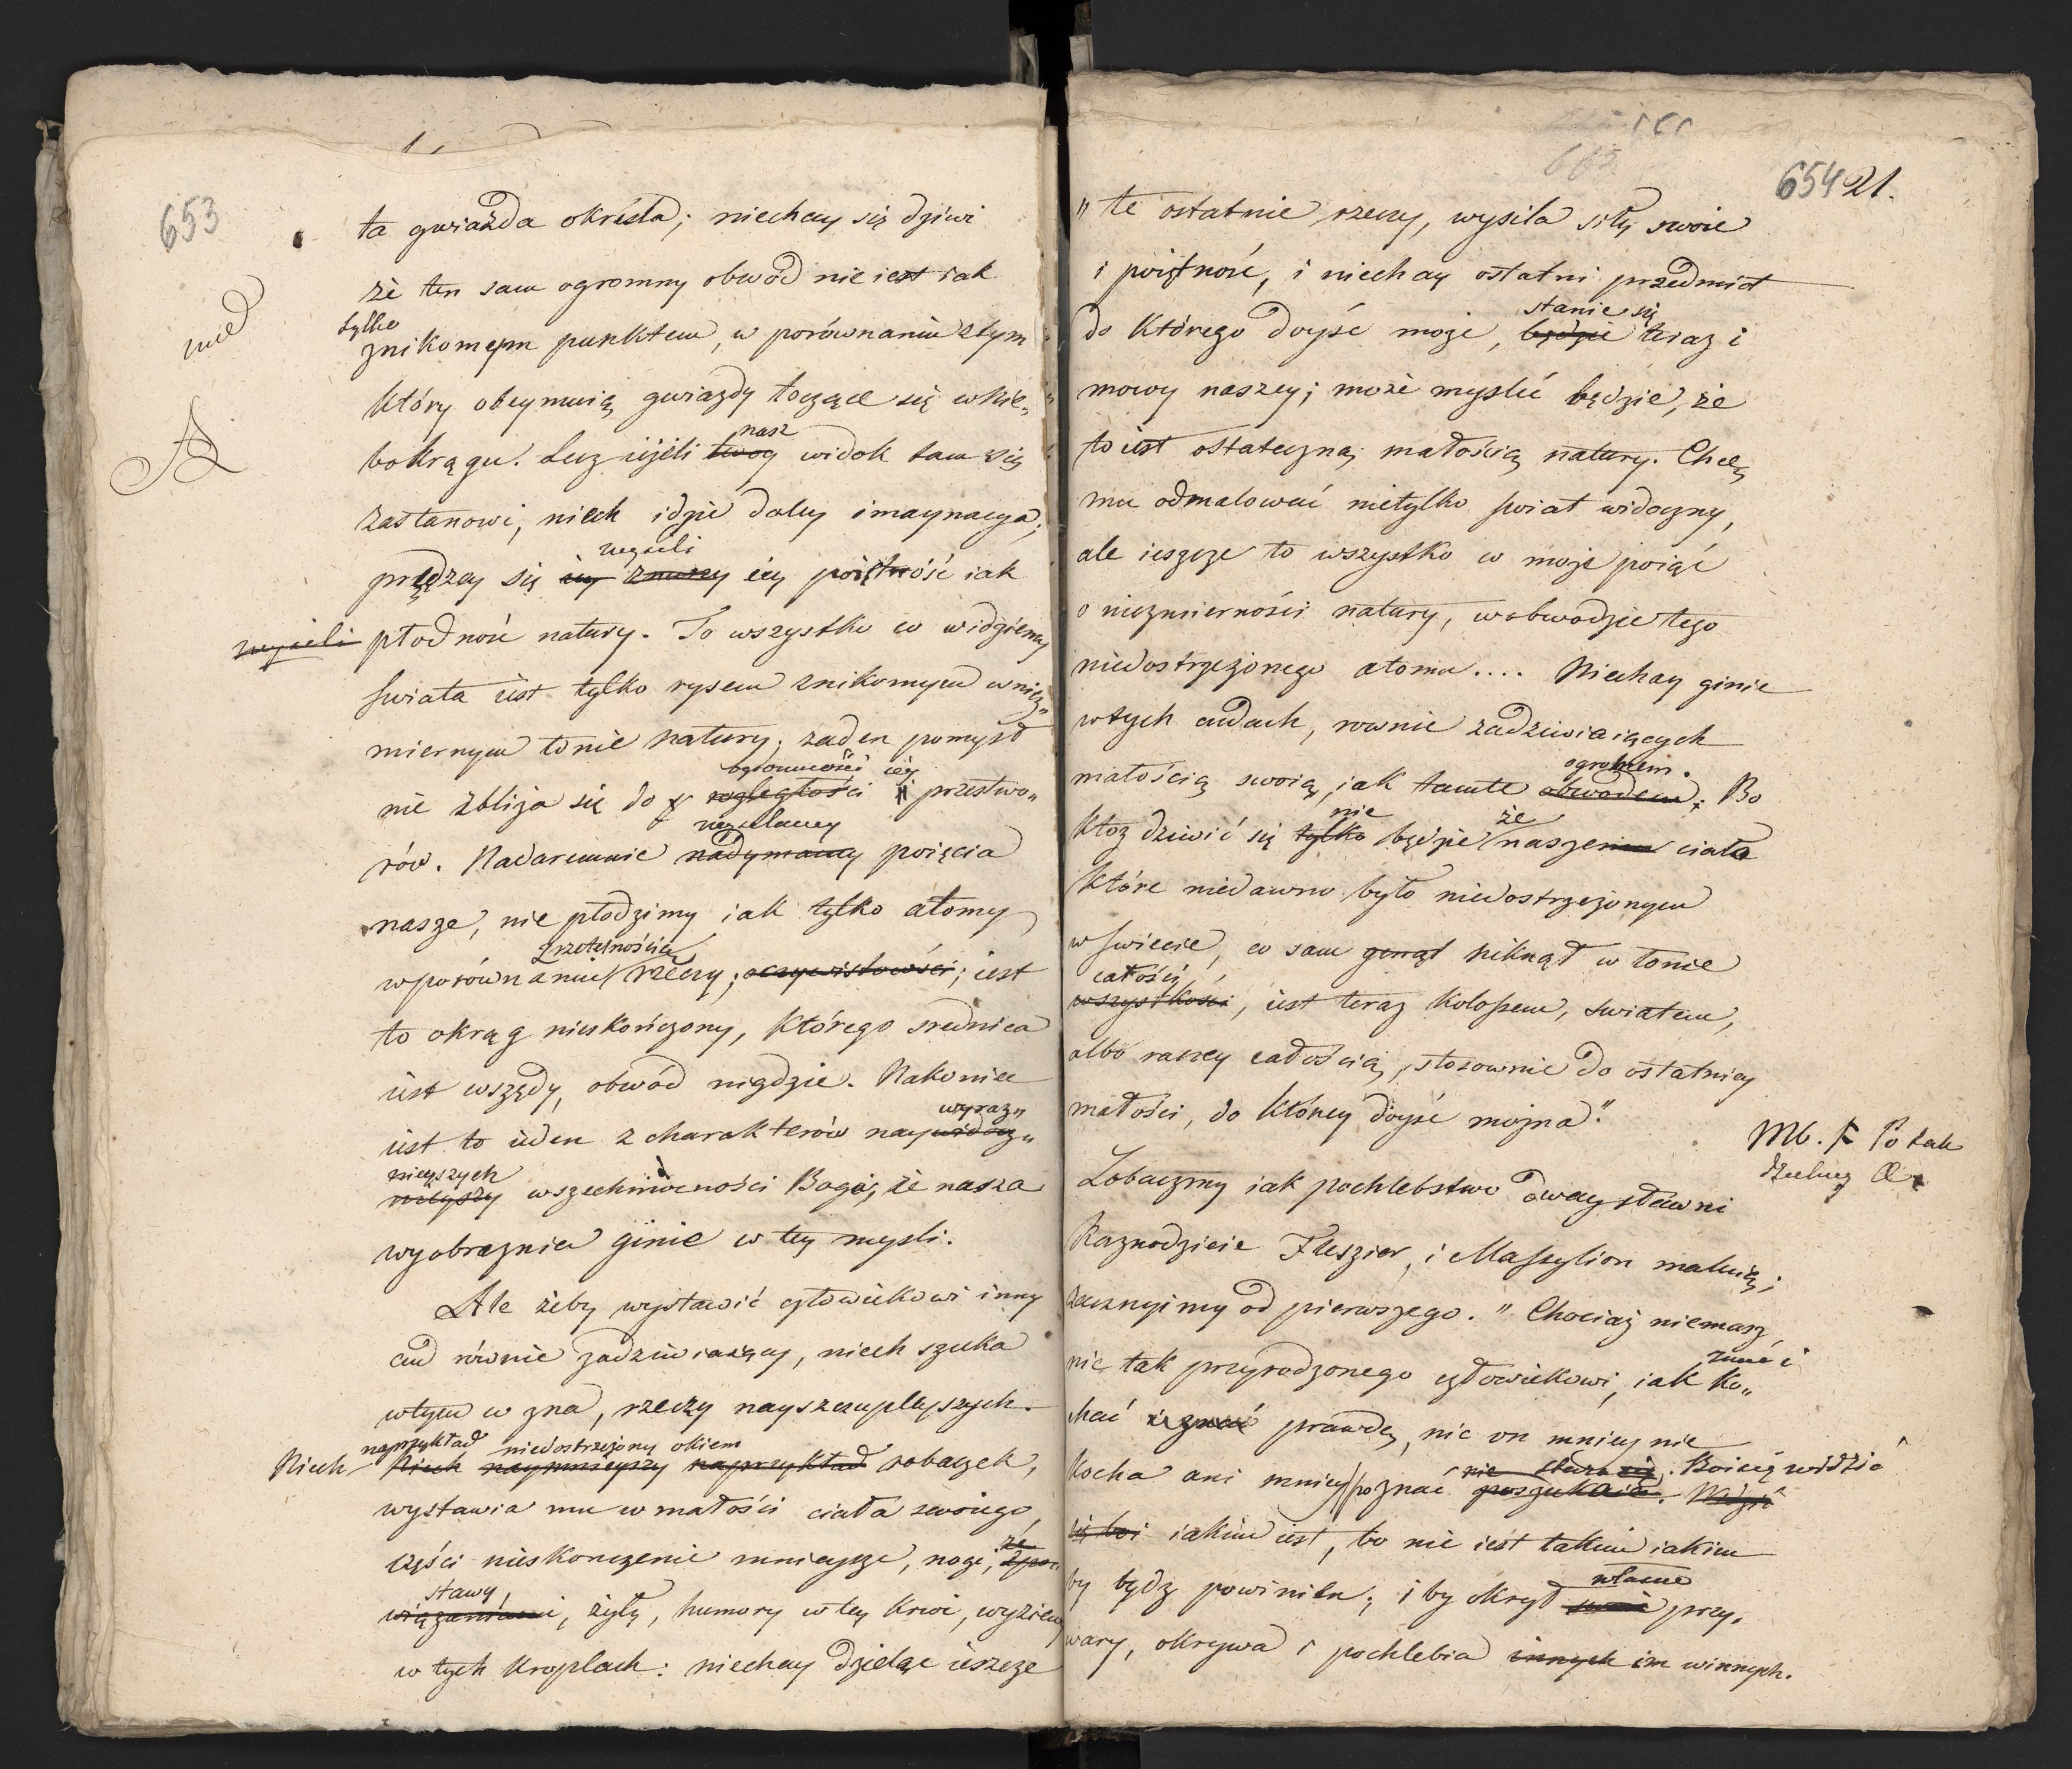 653
ta gwiazda okrésla; niechay się dziwi
że ten sam ogromny obwód nie iest iak
tylko
znikomym punktem, w porównaniu z tym
który obeymuią gwiazdy toczące się w Nie„
bokręgu. Lecz ieżeli twoy nasz widok tam się
zastanowi, niech idzie daley imaynacya;
prędzey się iey znuży wysili iey poiętność iak
wysili płodność natury. To wszystko co widziemy
swiata iest tylko rysem znikomym w niez„
miernym łonie natury; żaden pomysł
nie zbliża się do rozległości ogromności iey przestwo„
rów. Nadaremnie nadymamy wysilamy poięcia
nasze, nie płodzimy iak tylko atomy
w porównaniu z rzetelnością rzeczy; rzeczywistości; iest
to okrąg nieskończony, którego srednica
iest wszędy, obwód nigdzie. Nakoniec
iest to ieden z charakterów naywidocz„ wyraz„
nieyszych wszechmocności Boga, że nasza
wyobraznia ginie w tey mysli.
Ale żeby wystawić człowiekowi inny
cud równie zadziwiaiący, niech szuka
w tym co zna, rzeczy nayszczupleyszych.
Niech Niech naymnieyszy naprzykład naprzykład niedostrzeżony okiem robaczek,
wystawia mu w małości ciała swoiego,
części nieskonczenie mnieysze, nogi, ze
wiązaniami stawy, żyły, humory w tey krwi, wyziewy
w tych kroplach: niechay dzieląc ieszcze
654 21.
„ te ostatnie rzeczy, wysila siły swoie
i poiętność, i niechay ostatni przedmiot
do którego doyść może, będzie stanie się teraz i
mowy naszey; może myslić będzie, że
to iest ostateczną małością natury. Chcę
mu odmalować nietylko swiat widoczny,
ale ieszcze to wszystko co może poiąć
o niezmierności natury, w obwodzie tego
niedostrzeżonego atoma.... Niechay ginie
w tych cudach, rownie zadziwiaiących
małością swoią, iak tamte obwodem; ogromem. Bo
ktoz dziwić się tylko nie będzie że naszem ciało
które niedawno było niedostrzeżonym
w swiecie, co sam niknął w łonie
wszystkości całości, iest teraz kolossem, swiatem,
albo raczey całością, stosownie do ostatniey
małości, do którey doyść można."
Mb. Po tak
Zobaczmy iak pochlebstwo dway sławni
Kaznodzieie Fleszier, i Massylion maluią;
zacznyimy od pierwszego. „ Chociaż niemasz
nic tak przyrodzonego człowiekowi, iak znać i ko„
chać i znać prawdę, nic on mniey nie
kocha ani mniey poznać nie stara się. poszukuie. Boi się widzieć Widzieć
się boi iakim iest, bo nie iest takim iakim
by bydz powinien; i by okrył swoie własne przy„
wary, okrywa i pochlebia innych im w innych.